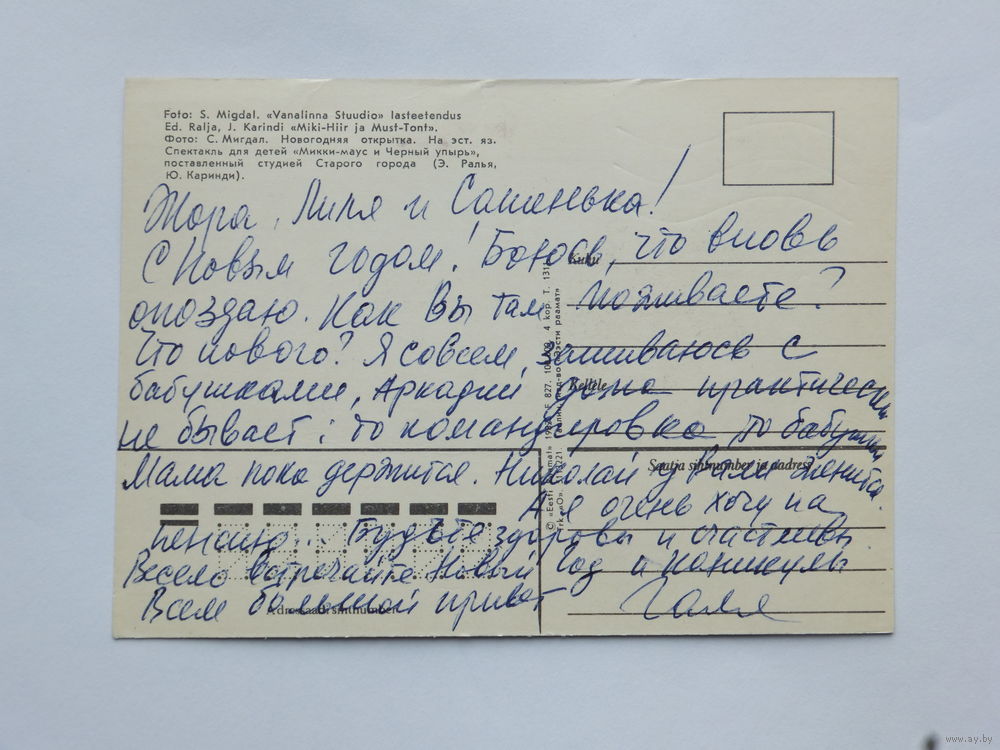 Foto: S. Migdal. «Vanalinna Stuudio» lasteetendus
Ed. Ralja, J. Karindi «Miki-Hiir ja Must-Tont».
Фото: С. Мигдал. Новогодняя открытка. На эст. яз.
Спектакль для детей «Микки-маус и Черный упырь»,
поставленный студией Старого города (Э. Ралья,
Ю. Каринди).
Жора, Лиля и Сашенька!
С Новым годом! Боюсь, что вновь
опоздаю. Как Вы там поживаете?
Что нового? Я совсем зашиваюсь с
бабушками, Аркадий дома практически
не бывает: то командировка то бабушка
Мама пока держится. Николай у Вали женится.
А я очень хочу на
пенсию... Будьте здоровы и счастливы
Весело встречайте Новый Год и каникулы
Всем большой привет Галя
Kuhu
Kellele
Saatja sihtnumber ja aadress
Adressaadi sihtnumber
© «Eesti Raamat» 4 kop. Т. 1311
«Ээсти раамат»
www.ay.by